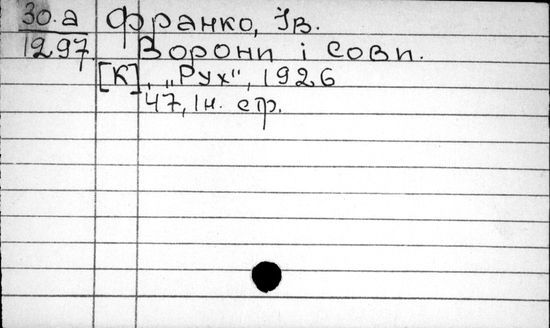 30.а Франко, Ів.
1297 Ворони і сови.
[К], „Рух“, 1926
47, 1н. стр.